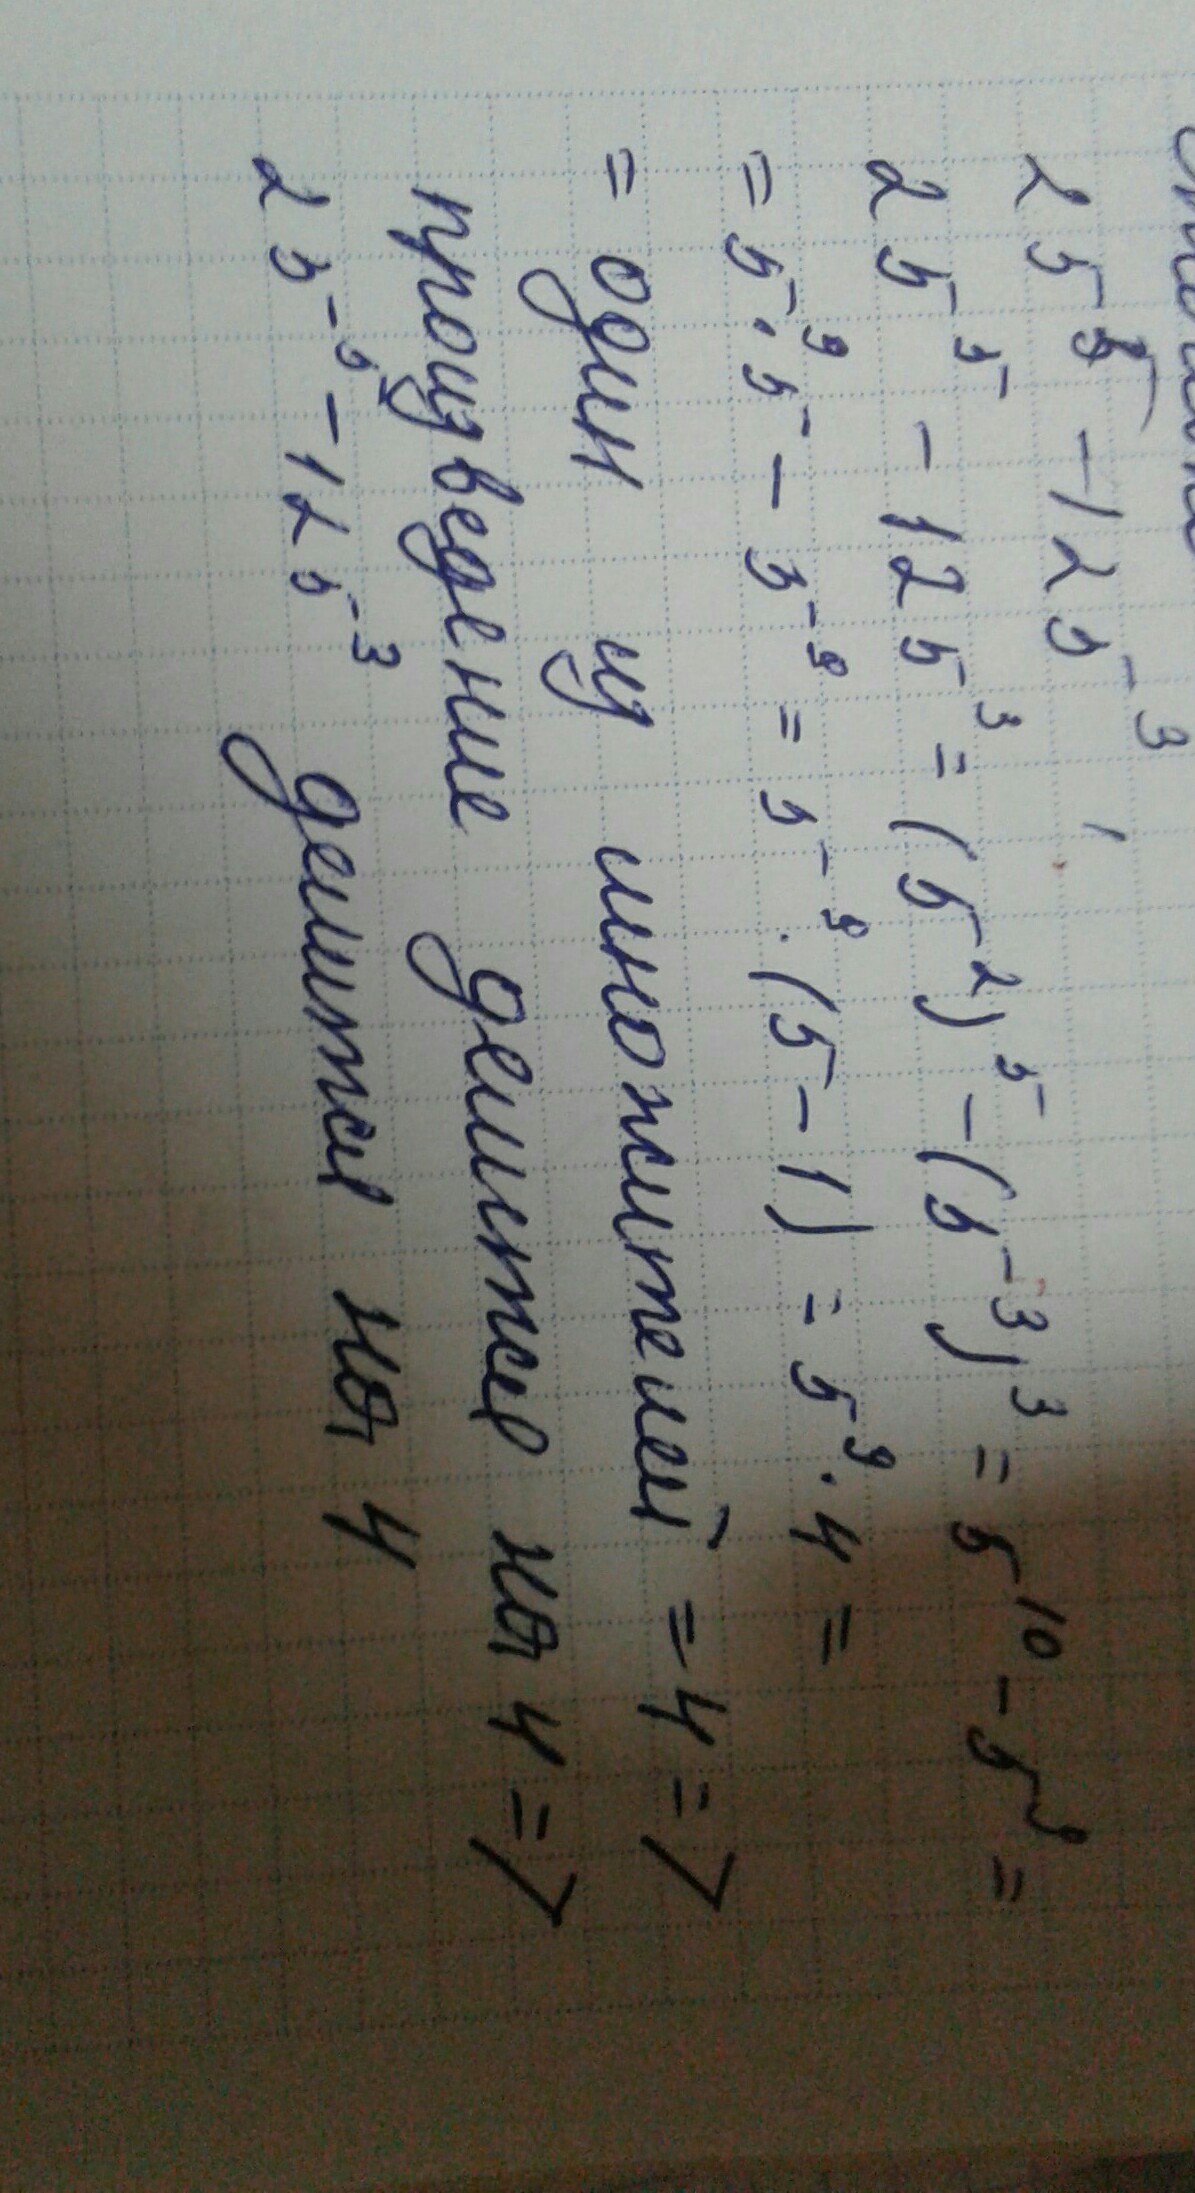 25⁵ - 125³
25⁵ - 125³ = (5²)⁵ - (5³)³ = 5¹⁰ - 5⁹ =
= 5⁹ · 5 - 5⁹ = 5⁹ · (5 - 1) = 5⁹ · 4 =
= один из множителей = 4 =>
произведение делится на 4 =>
25⁵ - 125³ делится на 4